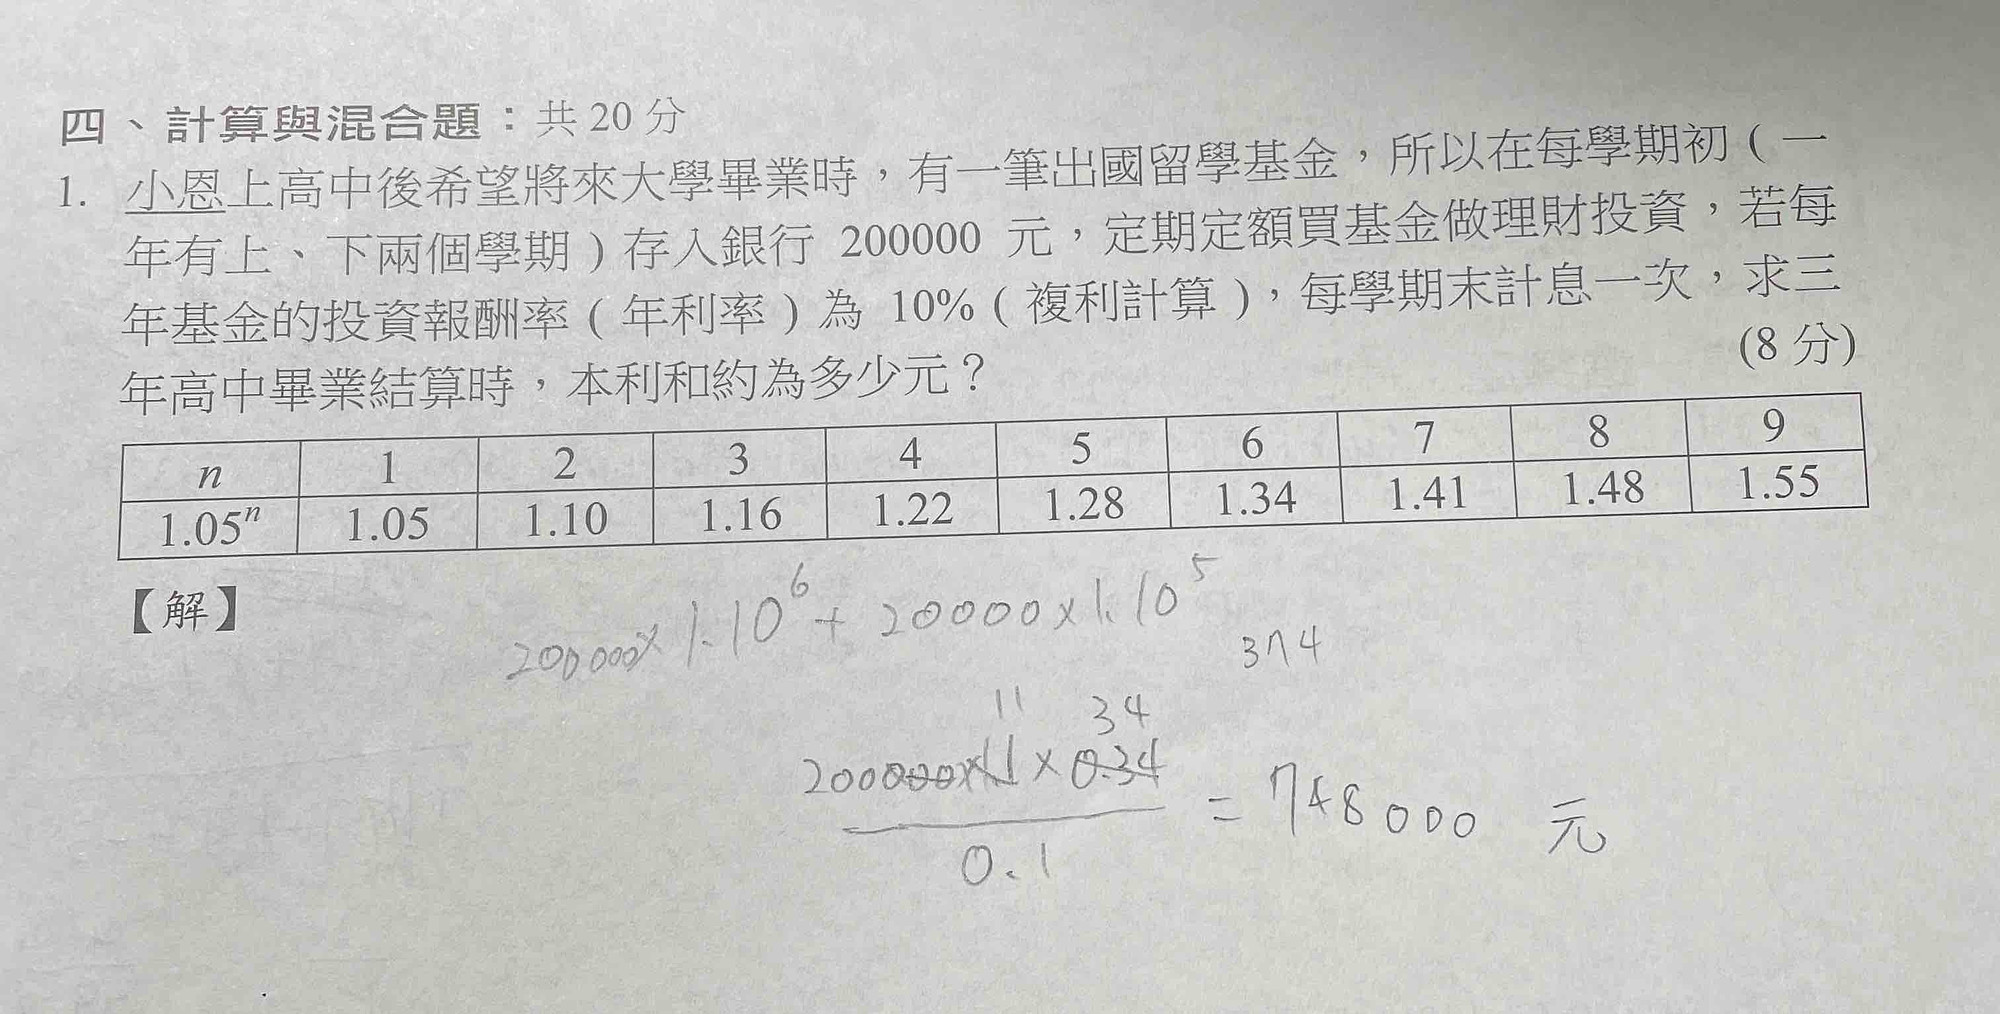 四、計算與混合題：共 20 分
1. 小恩上高中後希望將來大學畢業時，有一筆出國留學基金，所以在每學期初（一
年有上、下兩個學期）存入銀行 200000 元，定期定額買基金做理財投資，若每
年基金的投資報酬率（年利率）為 10%（複利計算），每學期末計息一次，求三
年高中畢業結算時，本利和約為多少元？ (8 分)
n 1 2 3 4 5 6 7 8 9
1.05ⁿ 1.05 1.10 1.16 1.22 1.28 1.34 1.41 1.48 1.55
【解】
200000×1.10⁶+20000×1.10⁵
374
11 34
200000×1.1×0.34
0.1
=748000 元